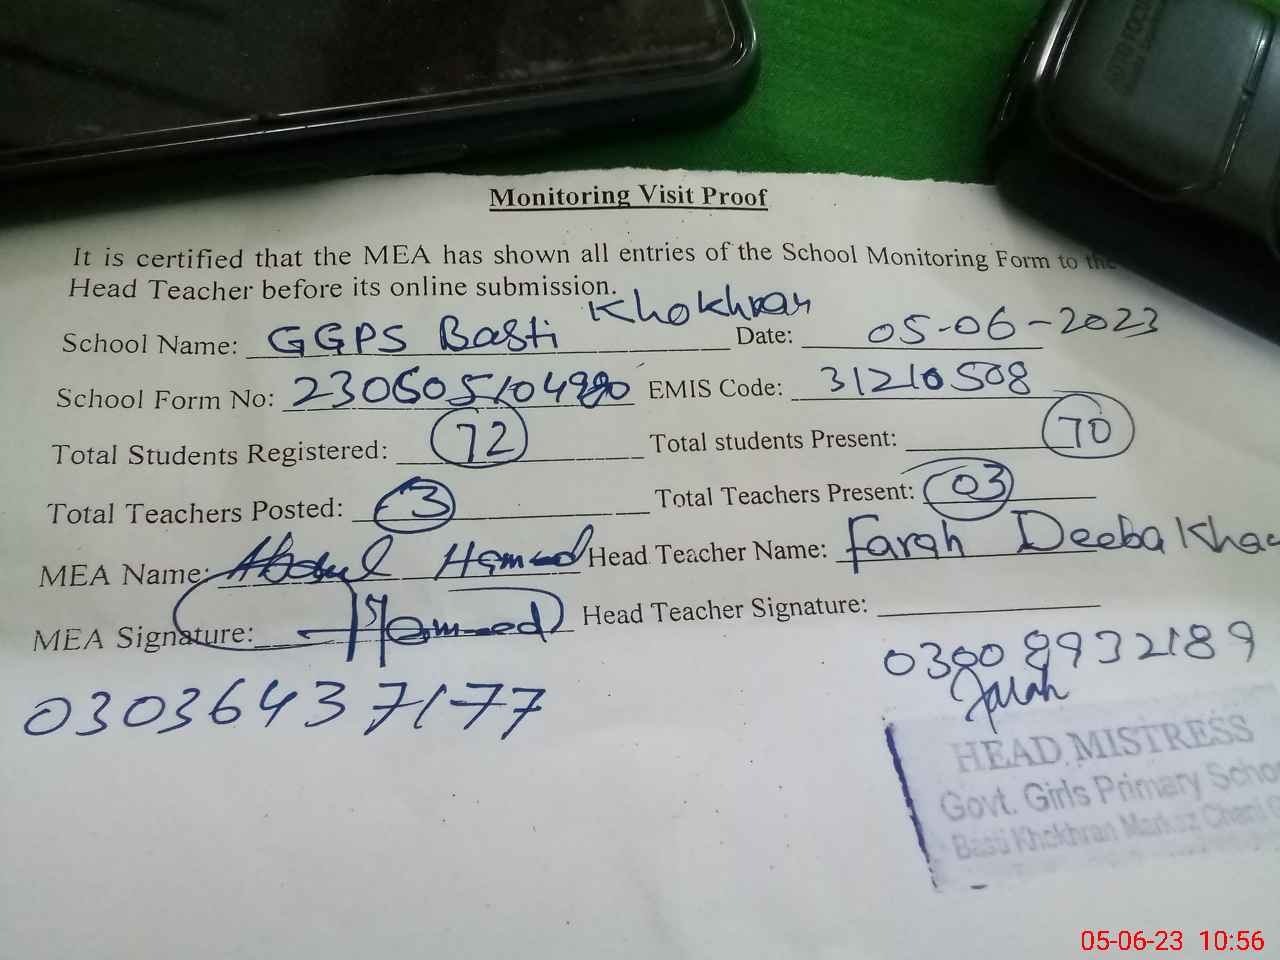 Monitoring Visit Proof
It is certified that the MEA has shown all entries of the School Monitoring Form to the
Head Teacher before its online submission.
School Name: GGPS Basti Khokhran Date: 05-06-2023
School Form No: 230605104980 EMIS Code: 31210508
Total Students Registered: 72 Total students Present: 70
Total Teachers Posted: 3 Total Teachers Present: 03
MEA Name: Abdul Hameed Head Teacher Name: Farah Deeba Khan
MEA Signature: Hameed Head Teacher Signature:
03008932189
Farah
03036437177
HEAD MISTRESS
Govt. Girls Primary School
Basti Khokhran Markaz Chani
05-06-23 10:56